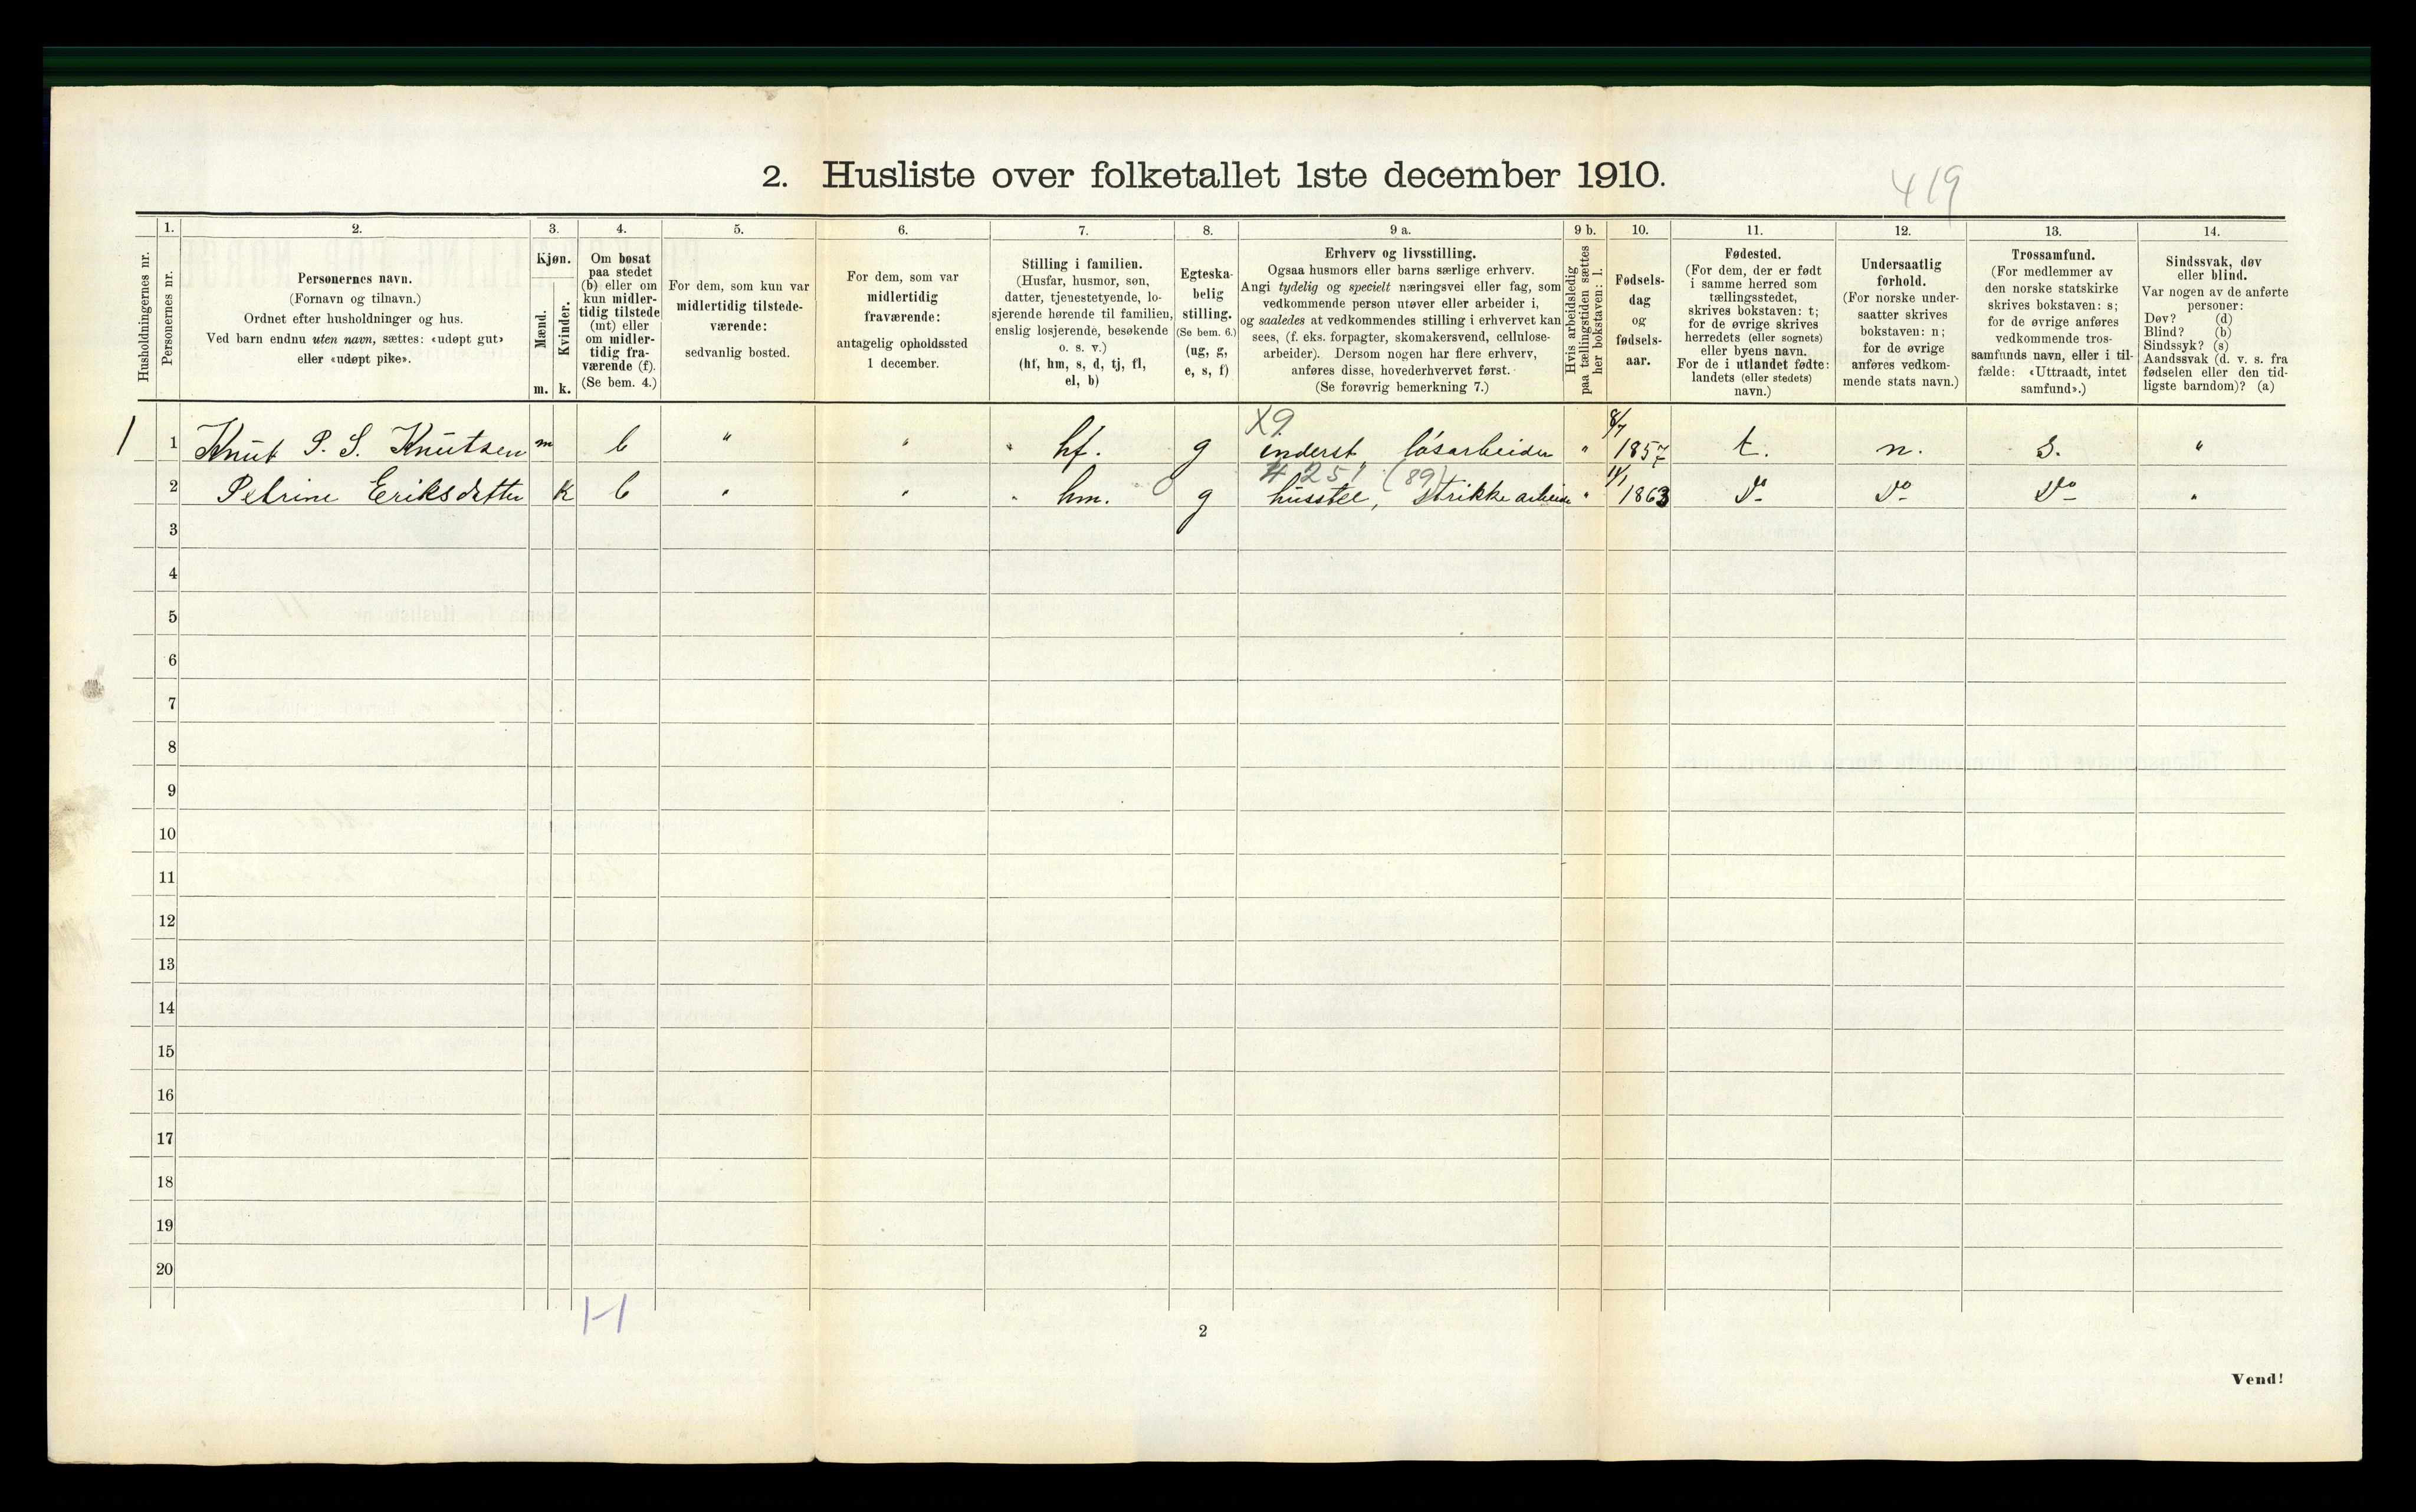 2. Husliste over folketallet 1ste december 1910.
419
Husholdningernes nr.
1.
Personernes nr.
2.
Personernes navn.
(Fornavn og tilnavn.)
Ordnet efter husholdninger og hus.
Ved barn endnu uten navn, sættes: «udøpt gut»
eller «udøpt pike».
3.
Kjøn.
Mænd.
m.
Kvinder.
k.
4.
Om bosat
paa stedet
(b) eller om
kun midler-
tidig tilstede
(mt) eller
om midler-
tidig fra-
værende (f).
(Se bem. 4.)
5.
For dem, som kun var
midlertidig tilstede-
værende:
sedvanlig bosted.
6.
For dem, som var
midlertidig
fraværende:
antagelig opholdssted
1 december.
7.
Stilling i familien.
(Husfar, husmor, søn,
datter, tjenestetyende, lo-
sjerende hørende til familien,
enslig losjerende, besøkende
o. s. v.)
(hf, hm, s, d, tj, fl,
el, b)
8.
Egteska-
belig
stilling.
(Se bem. 6.)
(ug, g,
e, s, f)
9 a.
Erhverv og livsstilling.
Ogsaa husmors eller barns særlige erhverv.
Angi tydelig og specielt næringsvei eller fag, som
vedkommende person utøver eller arbeider i,
og saaledes at vedkommendes stilling i erhvervet kan
sees, (f. eks. forpagter, skomakersvend, cellulose-
arbeider). Dersom nogen har flere erhverv,
anføres disse, hovederhvervet først.
(Se forøvrig bemerkning 7.)
9 b.
Hvis arbeidsledig
paa tællingstiden sættes
her bokstaven: l.
10.
Fødsels-
dag
og
fødsels-
aar.
11.
Fødested.
(For dem, der er født
i samme herred som
tællingsstedet,
skrives bokstaven: t;
for de øvrige skrives
herredets (eller sognets)
eller byens navn.
For de i utlandet fødte:
landets (eller stedets)
navn.)
12.
Undersaatlig
forhold.
(For norske under-
saatter skrives
bokstaven: n;
for de øvrige
anføres vedkom-
mende stats navn.)
13.
Trossamfund.
(For medlemmer av
den norske statskirke
skrives bokstaven: s;
for de øvrige anføres
vedkommende tros-
samfunds navn, eller i til-
fælde: «Uttraadt, intet
samfund».)
14.
Sindssvak, døv
eller blind.
Var nogen av de anførte
personer:
Døv? (d)
Blind? (b)
Sindssyk? (s)
Aandssvak (d. v. s. fra
fødselen eller den tid-
ligste barndom)? (a)
X9
8/7
1 1 Knut P. S. Knutsen m b " " " hf. g inderst, løsarbeider " 1857 t. n. s. "
4251 (89)
11/1
2 Petrine Eriksdatter k b " " " hm. g husstel, strikkearbeide " 1863 do do do "
3
4
5
6
7
8
9
10
11
12
13
14
15
16
17
18
19
20
1-1
2
Vend!